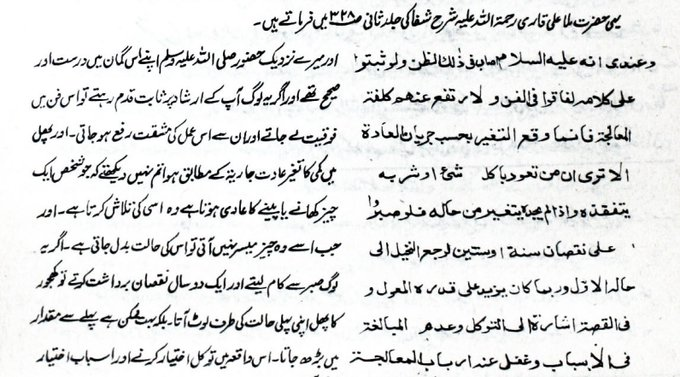 یہی حضرت ملا علی قاری رحمۃ اللہ علیہ شرح شفا کی جلد ثانی ص ۳۲۸ میں فرماتے ہیں۔
وعندی انه علیه السلام اصاب فی ذلك الظن ولو ثبتوا
علی کلامه لفاقوا فی الفن و لارتفع عنهم کلفة
المعالجة فانما وقع التغیر بحسب جریان العادة
الا تری ان من تعود باکل شئ او شربه
یتفقده واذا لم یجده یتغیر من حاله فلو صبروا
علی نقصان سنة او سنتین لرجع النخیل الی
حاله الاول وربما کان یزید علی قدره المعول و
فی القصة اشارة الی التوکل وعدم المبالغة
فی الاسباب وغفل عند ارباب المعالجة
اور میرے نزدیک حضور صلی اللہ علیہ وسلم اپنے اس گمان میں درست اور
صحیح تھے اور اگر یہ لوگ آپ کے ارشاد پر ثابت قدم رہتے تو اس فن میں
فوقیت لے جاتے اور ان سے اس عمل کی مشقت رفع ہو جاتی۔ اور پھل
میں کمی کا تغیر عادت جاریہ کے مطابق ہوا تم نہیں دیکھتے کہ جو شخص ایک
چیز کھانے یا پینے کا عادی ہوتا ہے وہ اسی کی تلاش کرتا ہے۔ اور
جب اسے وہ چیز میسر نہیں آتی تو اس کی حالت بدل جاتی ہے۔ اگر یہ
لوگ صبر سے کام لیتے اور ایک دو سال نقصان برداشت کرتے تو کھجور
کا پھل اپنی پہلی حالت کی طرف لوٹ آتا۔ بلکہ بہت ممکن ہے پہلے سے مقدار
میں بڑھ جاتا۔ اس واقعہ میں توکل اختیار کرنے اور اسباب اختیار